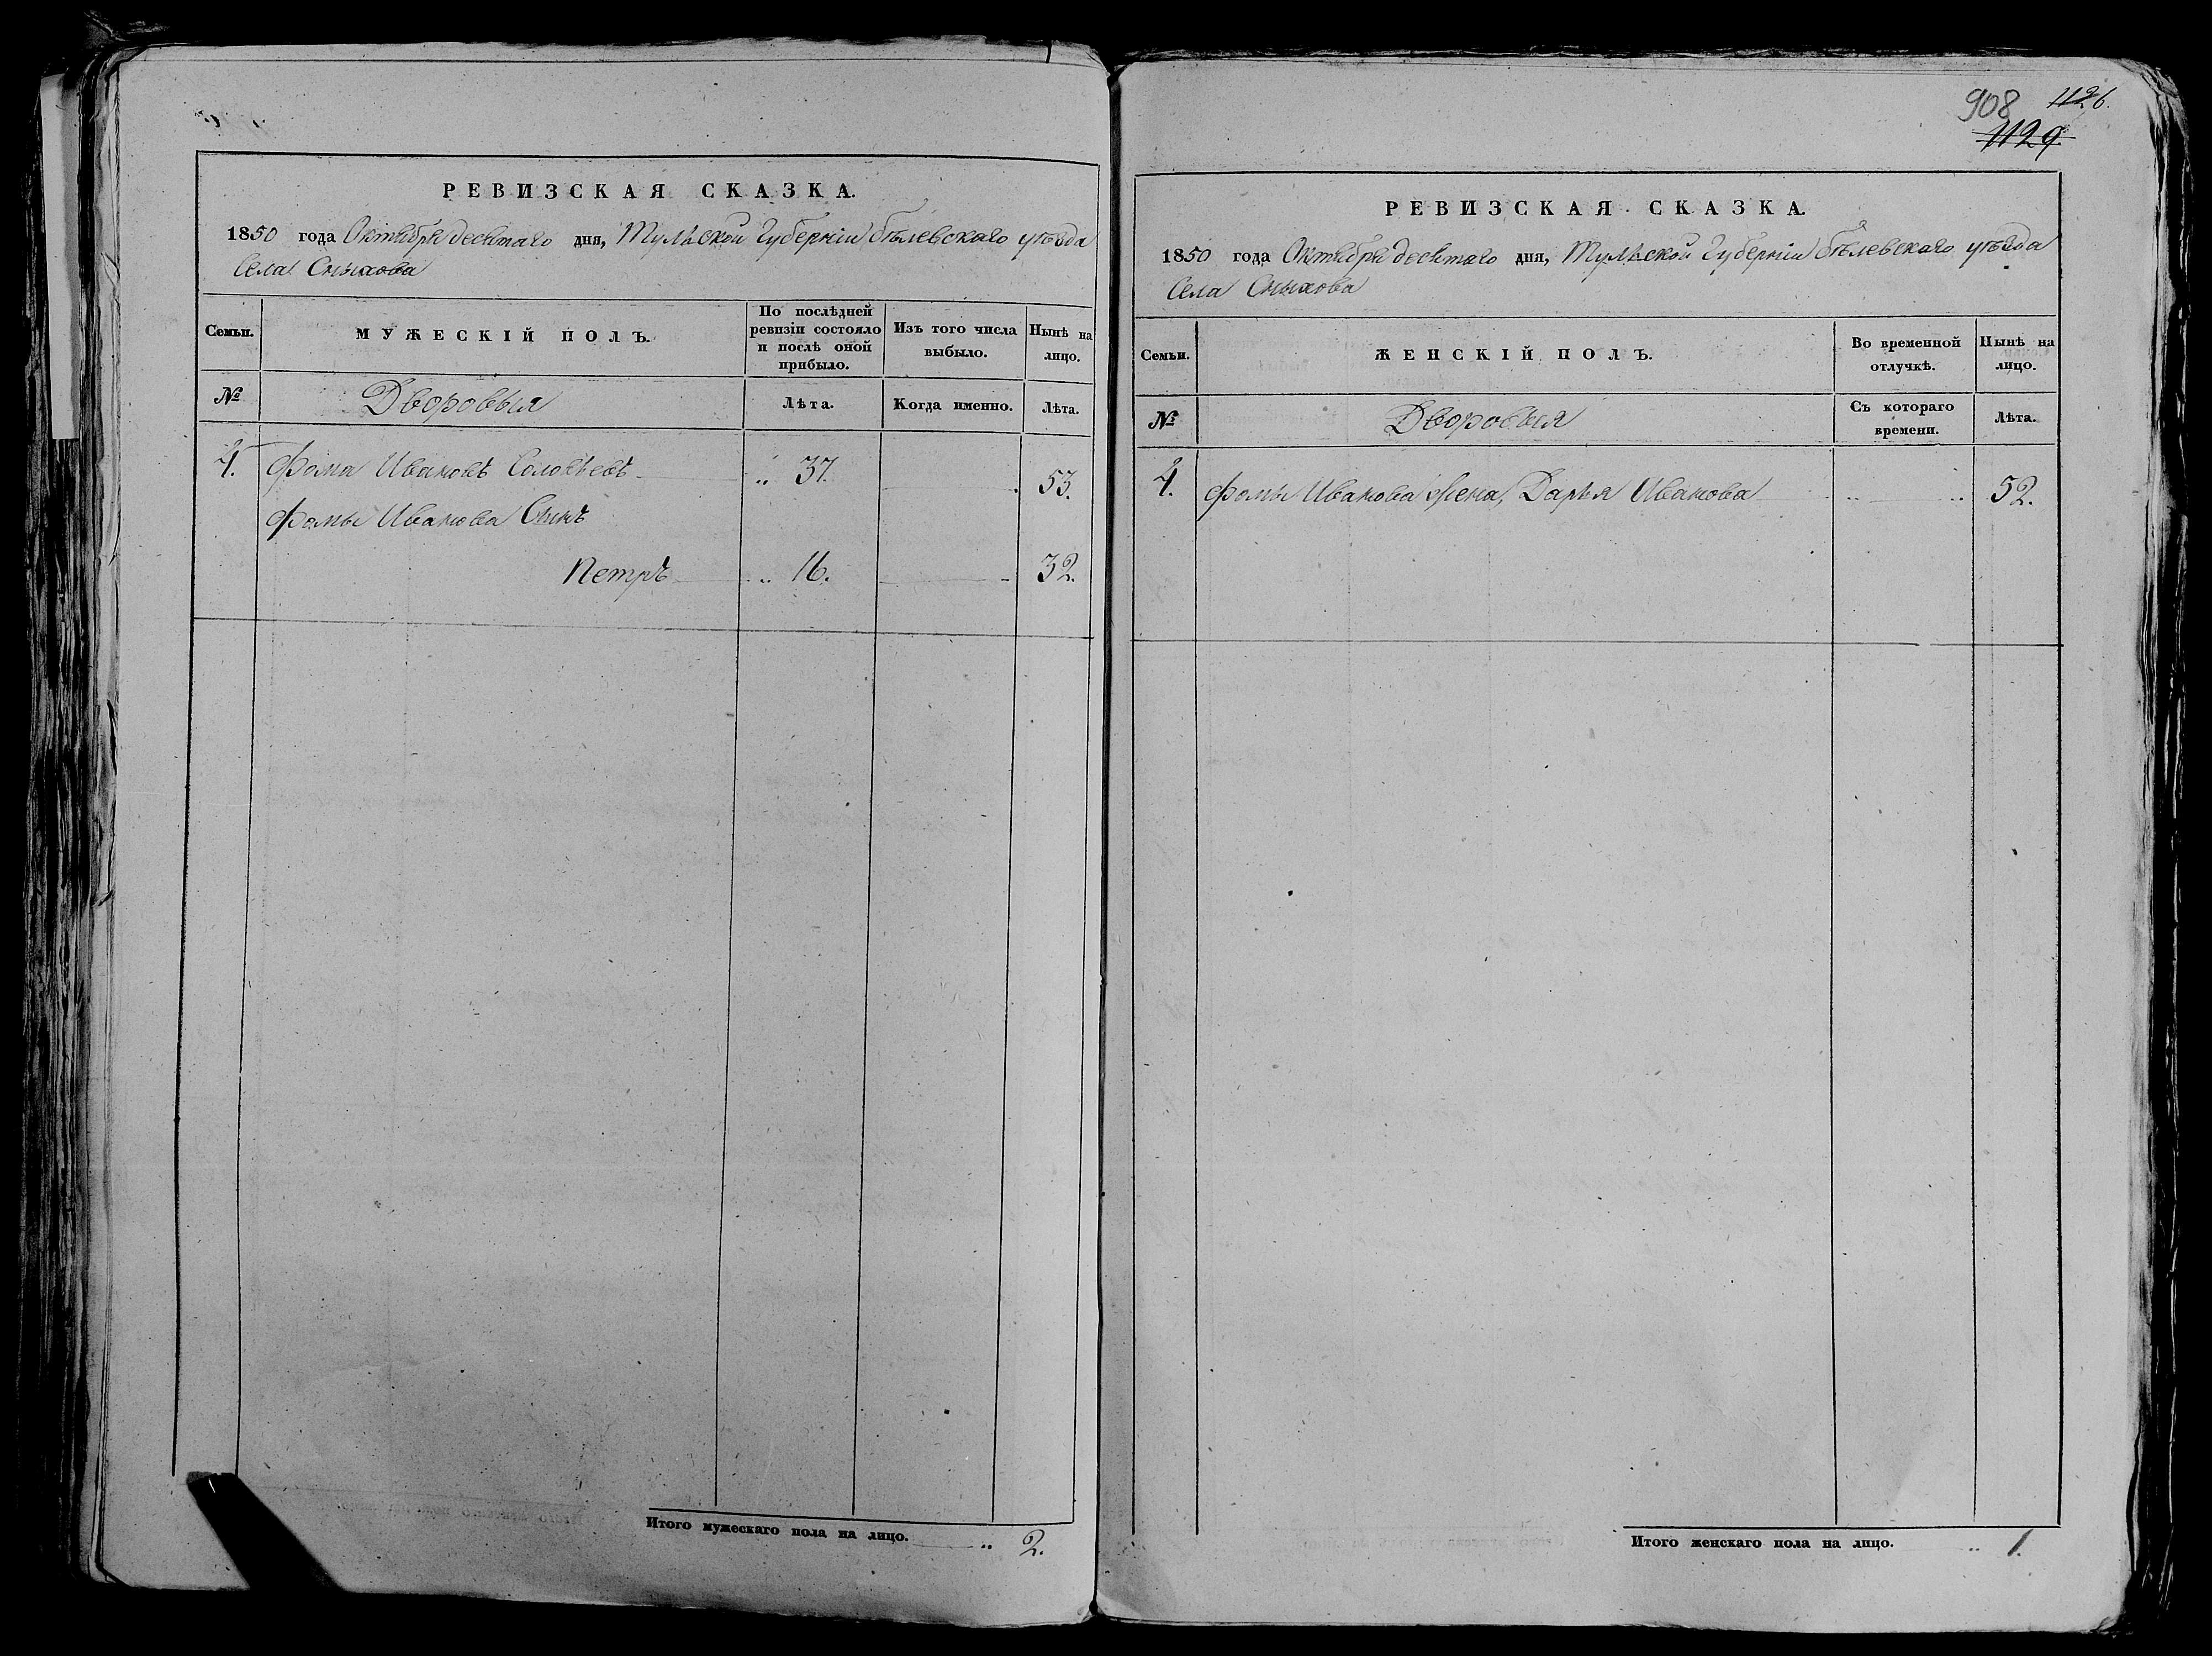 РЕВИЗСКАЯ СКАЗКА.
1850 года Октября десятаго дня, Тульской Губерніи Бѣлевскаго уѣзда
Села Сныхова
Семьи.
МУЖЕСКІЙ ПОЛЪ.
По послѣдней
ревизіи состояло
и послѣ оной
прибыло.
Изъ того числа
выбыло.
Нынѣ на
лицо.
№
Дворовыя
Лѣта.
Когда именно.
Лѣта.
4. Фома Ивановъ Соловьевъ 37. 53.
Фомы Иванова Сынъ
Петръ 16. 32.
Итого мужескаго пола на лицо. 2.
908 1126.
1129.
РЕВИЗСКАЯ СКАЗКА.
1850 года Октября десятаго дня, Тульской Губерніи Бѣлевскаго уѣзда
Села Сныхова
Семьи.
ЖЕНСКІЙ ПОЛЪ.
Во временной
отлучкѣ.
Нынѣ на
лицо.
№
Дворовыя
Съ котораго
времени.
Лѣта.
4. Фомы Иванова Жена, Дарья Иванова 52.
Итого женскаго пола на лицо. 1.